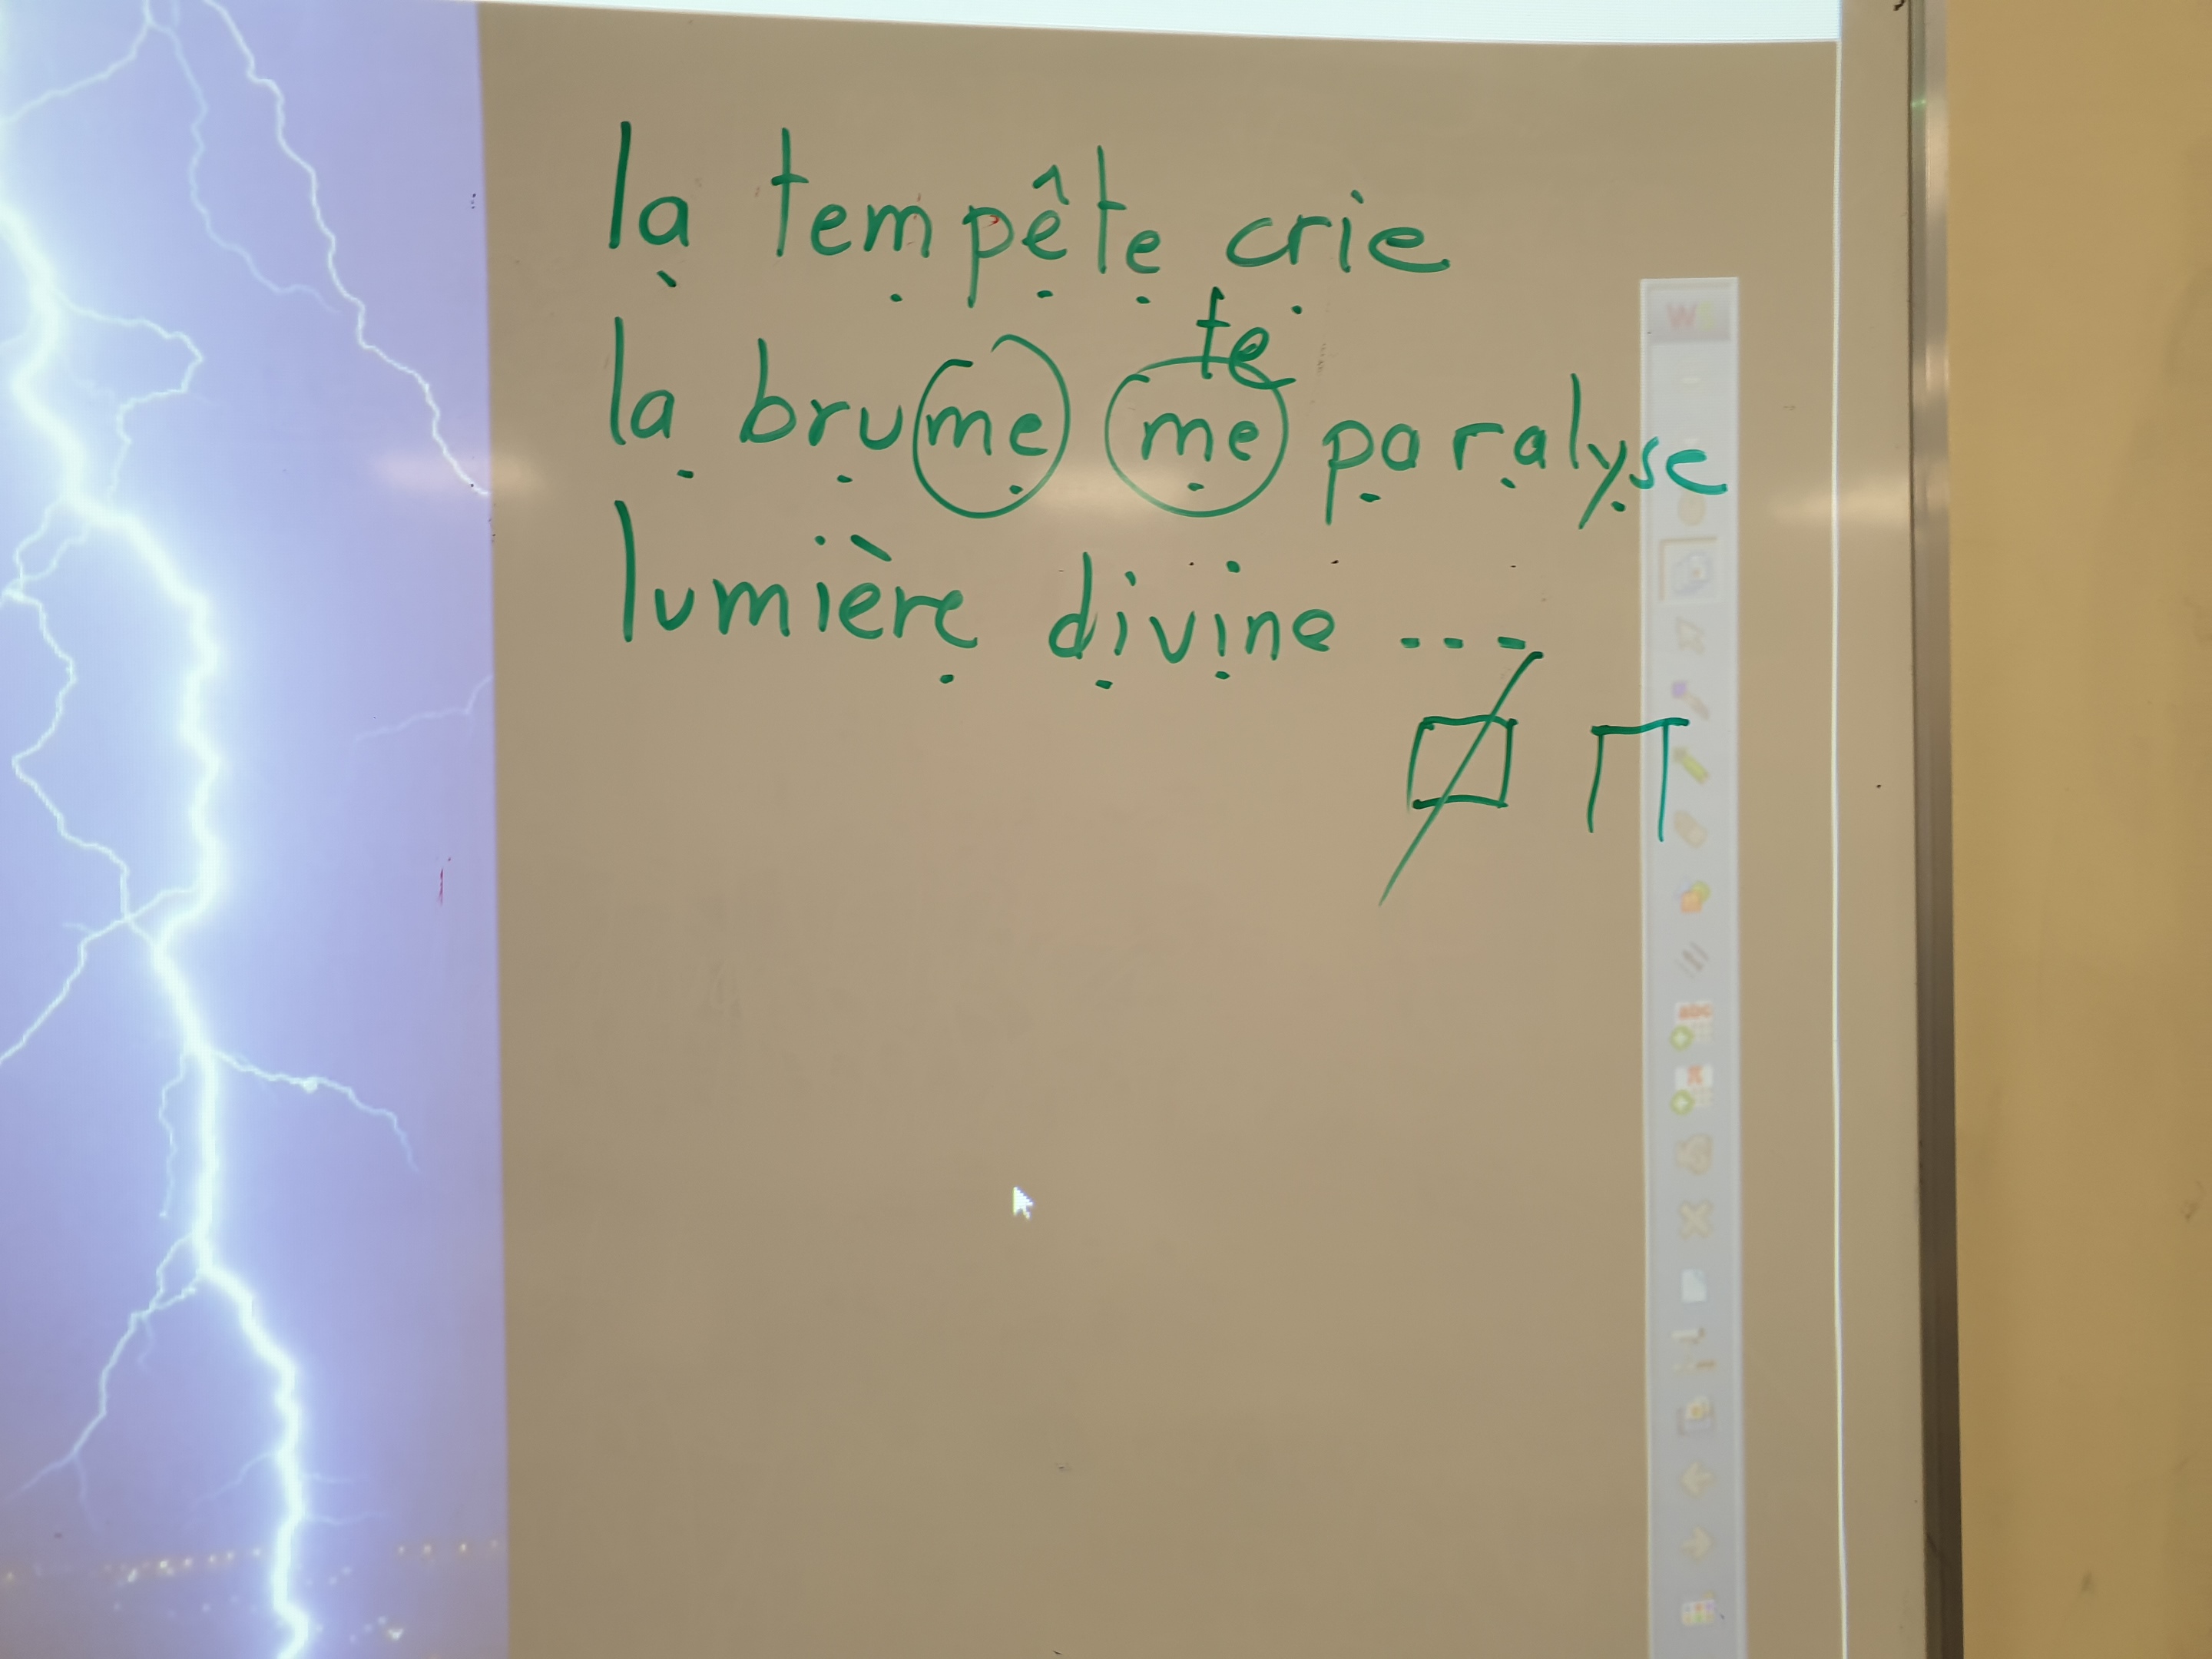 la tempête crie
te
la brume me paralyse
lumière divine ---
abc